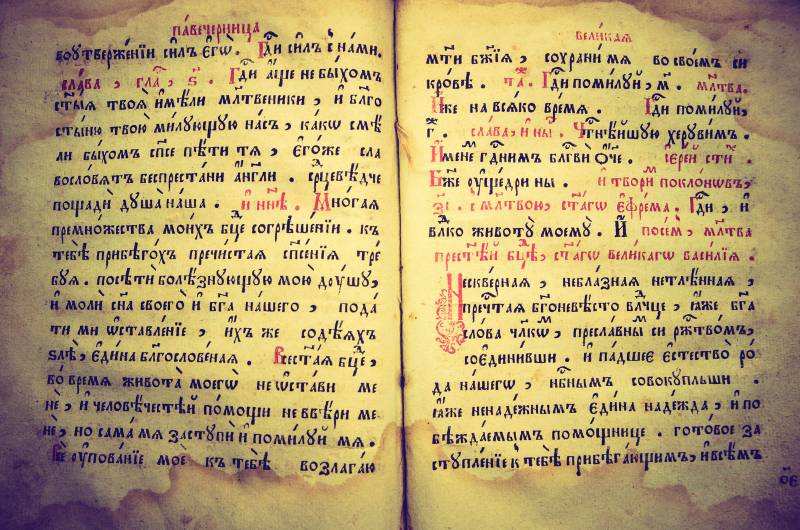 па́вечерница
воутвержє́нїи си́лъ є҆гѡ̀ . Гдⷭ҇и си́лъ с̾на́ми .
сла́ва , гла́ , ѕ҃ . Гдⷭ҇и а҆́ще не бы́хомъ
ст҃ы́ѧ твоѧ̀ и҆мѣ́ли мл҃твеники , и҆ бл҃го
сты́ню твою̀ ми́лꙋющꙋю на́съ , ка́кѡ смѣ́
ли бы́хомъ сп҃се пѣ́ти тѧ̀ , є҆го́же сла
восло́вѧтъ беспреста́ни а҆́гг҃ли . срⷣцевѣ́дче
пощадѝ дꙋ́ша на́ша . и҆ ны́нѣ . Мно́гаѧ
премно́жества мои́хъ бцⷣе согрѣше́нїи . къ
тебѣ̀ прибѣго́хъ пречи́стаѧ сп҃се́нїѧ тре́
бꙋѧ . посѣтѝ болѣ́знꙋющꙋю мою̀ дꙋ́шꙋ ,
и҆ молѝ сн҃а своего̀ и҆ бг҃а на́шего , пода́
ти ми ѡ҆ставле́нїе , и҆́хъ же содѣ́ѧхъ
ѕлѣ̀ , є҆ди́на бл҃гослове́наѧ . Всест҃а́ѧ бцⷣе ,
во вре́мѧ живота̀ моегѡ̀ не ѡ҆ста́ви ме
нѐ , и҆ человѣ́честѣй по́мощи не ввѣ́ри ме
нѐ , но сама́ мѧ застꙋпѝ и҆ поми́лꙋй мѧ .
Всѐ ᲂу҆пова́нїе моѐ къ тебѣ̀ возлага́ю
вели́каѧ
мт҃и бж҃їѧ , сохрани́ мѧ во свое́мъ си
кро́вѣ . Гдⷭ҇и поми́лꙋй , м҃ . мл҃тва .
И҆́же на всѧ́ко вре́мѧ . Гдⷭ҇и поми́лꙋй ,
г҃ . сла́ва , и҆ ны́ . Чⷭ҇тнѣ́йшꙋю херꙋви́мъ .
И҆́менемъ гдⷭ҇нимъ бл҃гвѝ ѻ҆́ч҃е . і҆ере́й
Бж҃е ᲂу҆ще́дри ны . и҆ творѝ покло́нѡвъ ,
з҃і . с мл҃твою , ст҃а́гѡ є҆фре́ма . Гдⷭ҇и , и҆
влⷣко животꙋ̀ моемꙋ̀ . И҆ посе́мъ , мл҃тва
прест҃ѣ́й бцⷣѣ , ст҃а́гѡ вели́кагѡ васи́лїѧ .
Нескве́рнаѧ , небла́знаѧ нетлѣ́ннаѧ ,
пречⷭ҇таѧ бг҃оневѣ́сто влⷣчце , ꙗ҆́же бг҃а
сло́ва чл҃кѡ́мъ , пресла́вны́ си ржⷭ҇тво́мъ ,
соєдини́вши . и҆ па́дшее є҆стество̀ ро́
да на́шегѡ , нбⷭ҇нымъ совокꙋ́пльши .
ꙗ҆́же ненаде́жнымъ є҆ди́на наде́жда , и҆ по
бѣжда́емымъ помо́щнице . гото́вое за
стꙋпле́нїе к̾ тебѣ̀ прибѣга́ющимъ , и҆ всѣ́мъ